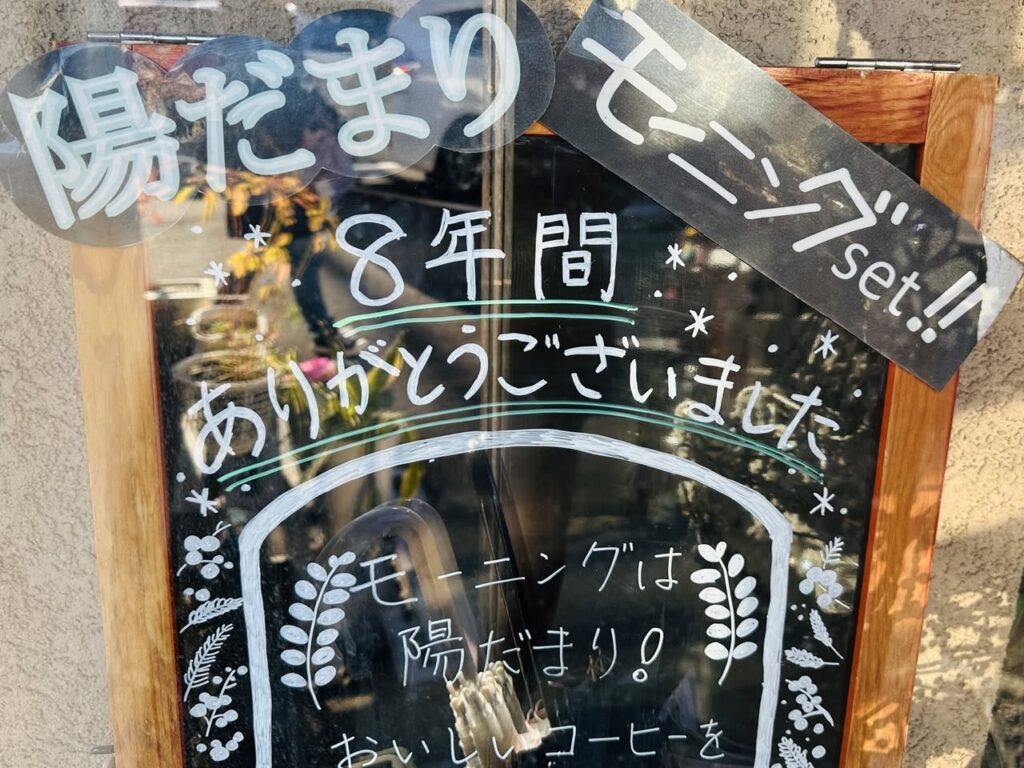 陽だまり
モーニングset!!
8年間
ありがとうございました
モーニングは
陽だまり!
おいしいコーヒーを